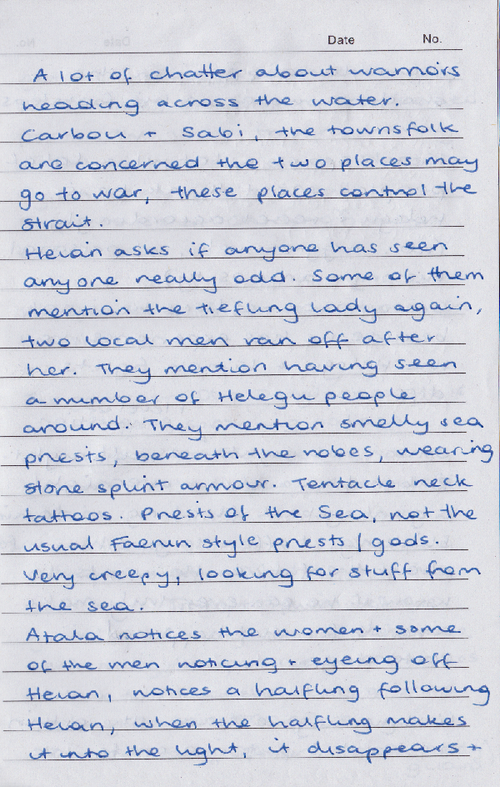 Date No.
A lot of chatter about warriors
heading across the water.
Carbou + Sabi, the townsfolk
are concerned the two places may
go to war, these places control the
strait.
Hevan asks if anyone has seen
anyone really odd. Some of them
mention the tiefling lady again,
two local men ran off after
her. They mention having seen
a number of Helegu people
around. They mention smelly sea
priests, beneath the robes, wearing
stone splint armour. Tentacle neck
tattoos. Priests of the Sea, not the
usual Faerun style priests / gods.
Very creepy, looking for stuff from
the sea.
Atala notices the women + some
of the men noticing + eyeing off
Hevan, notices a halfling following
Hevan, when the halfling makes
it into the light, it disappears +